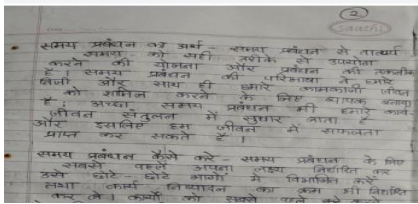 2
Saathi
समय प्रबंधन का अर्थ - समय प्रबंधन से तात्पर्य
समय को सही तरीके से उपयोग
करने की योजना और प्रबंधन की तकनीक
है। समय प्रबंधन की परिभाषा ने हमारे
निजी और साथ ही हमारे कामकाजी जीवन
को शामिल करने के लिए व्यापक बनाया
है। अच्छा समय प्रबंधन भी हमारे कार्य-
जीवन संतुलन में सुधार लाता है
और इसलिए हम जीवन में सफलता
प्राप्त कर सकते हैं।
समय प्रबंधन कैसे करे - समय प्रबंधन के लिए
सबसे पहले अपना लक्ष्य निर्धारित कर
उसे छोटे-छोटे भागों में विभाजित करें
तथा कार्य निष्पादन का क्रम भी निर्धारित
कर ले। कार्यों को सबसे पहले करें